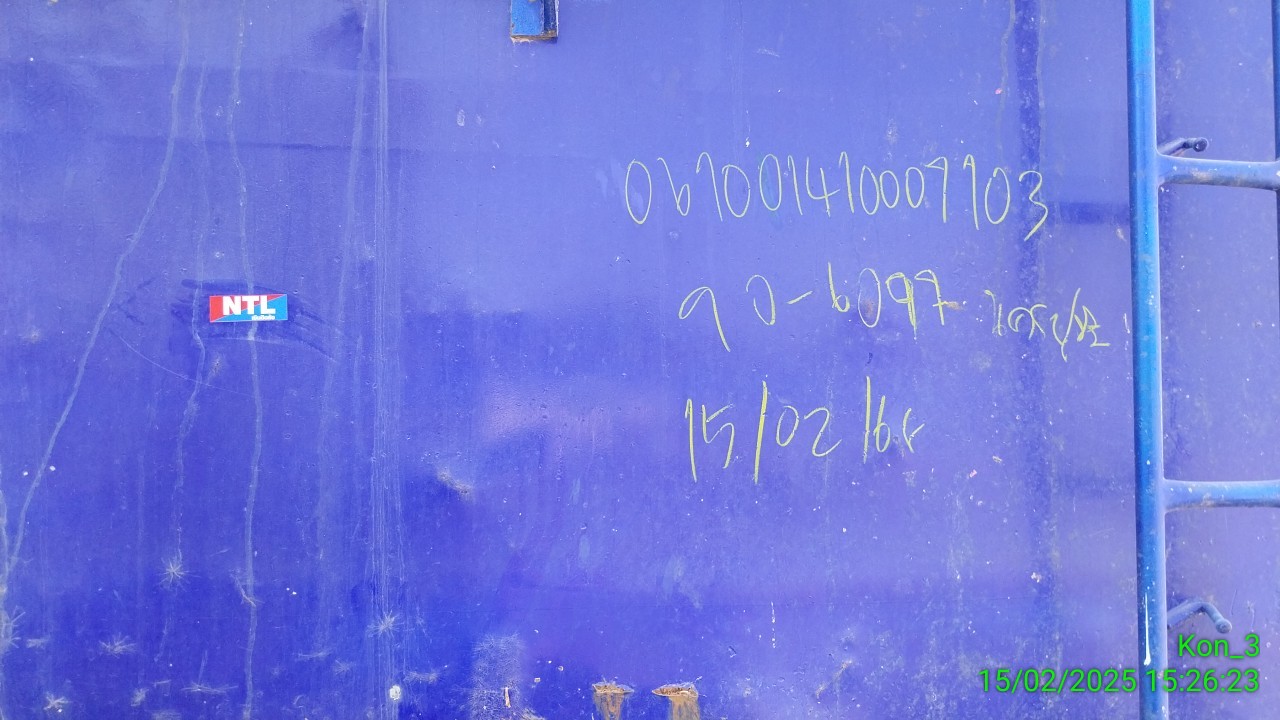 NTL
067001410007703
90-6097 นครปฐม
15/02/68
Kon_3
15/02/2025 15:26:23